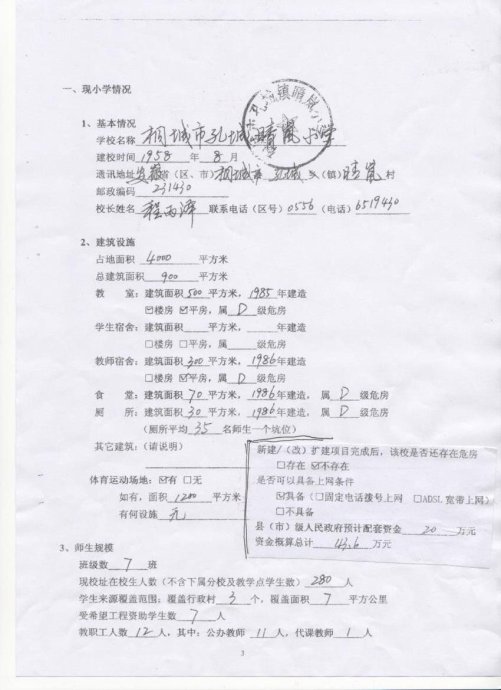 一、现小学情况
1、基本情况
学校名称 桐城市孔城晴岚小学
建校时间 1958 年 8 月
通讯地址 安徽省（区、市）桐城市 孔城 乡（镇）晴岚 村
邮政编码 231430
校长姓名 程雨泽 联系电话（区号）0556（电话）6519430
2、建筑设施
占地面积 4000 平方米
总建筑面积 900 平方米
教 室：建筑面积 500 平方米，1985 年建造
☑楼房 ☑平房，属 D 级危房
学生宿舍：建筑面积 平方米， 年建造
□楼房 □平房，属 级危房
教师宿舍：建筑面积 300 平方米，1986 年建造
□楼房 ☑平房，属 D 级危房
食 堂：建筑面积 70 平方米，1986 年建造，属 D 级危房
厕 所：建筑面积 30 平方米，1986 年建造，属 D 级危房
（厕所平均 35 名师生一个坑位）
其它建筑：（请说明）
体育运动场地：☑有 □无
如有，面积 1200 平方米
有何设施 无
新建/（改）扩建项目完成后，该校是否还存在危房
□存在 ☑不存在
是否可以具备上网条件
☑具备（□固定电话拨号上网 □ADSL 宽带上网）
□不具备
县（市）级人民政府预计配套资金 20 万元
资金概算总计 43.6 万元
3、师生规模
班级数 7 班
现校址在校生人数（不含下属分校及教学点学生数）280 人
学生来源覆盖范围：覆盖行政村 3 个，覆盖面积 7 平方公里
受希望工程资助学生数 7 人
教职工人数 12 人，其中：公办教师 11 人，代课教师 1 人
3